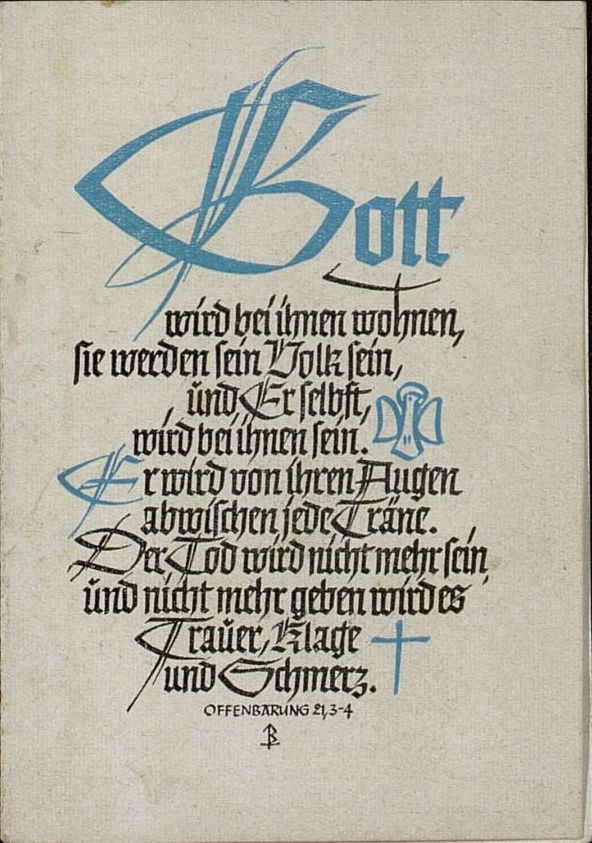 Gott
wird bei ihnen wohnen,
sie werden sein Volk sein,
und Er selbst,
wird bei ihnen sein.
Er wird von ihren Augen
abwischen jede Träne.
Der Tod wird nicht mehr sein,
und nicht mehr geben wird es
Trauer, Klage
und Schmerz.
OFFENBARUNG 21,3-4